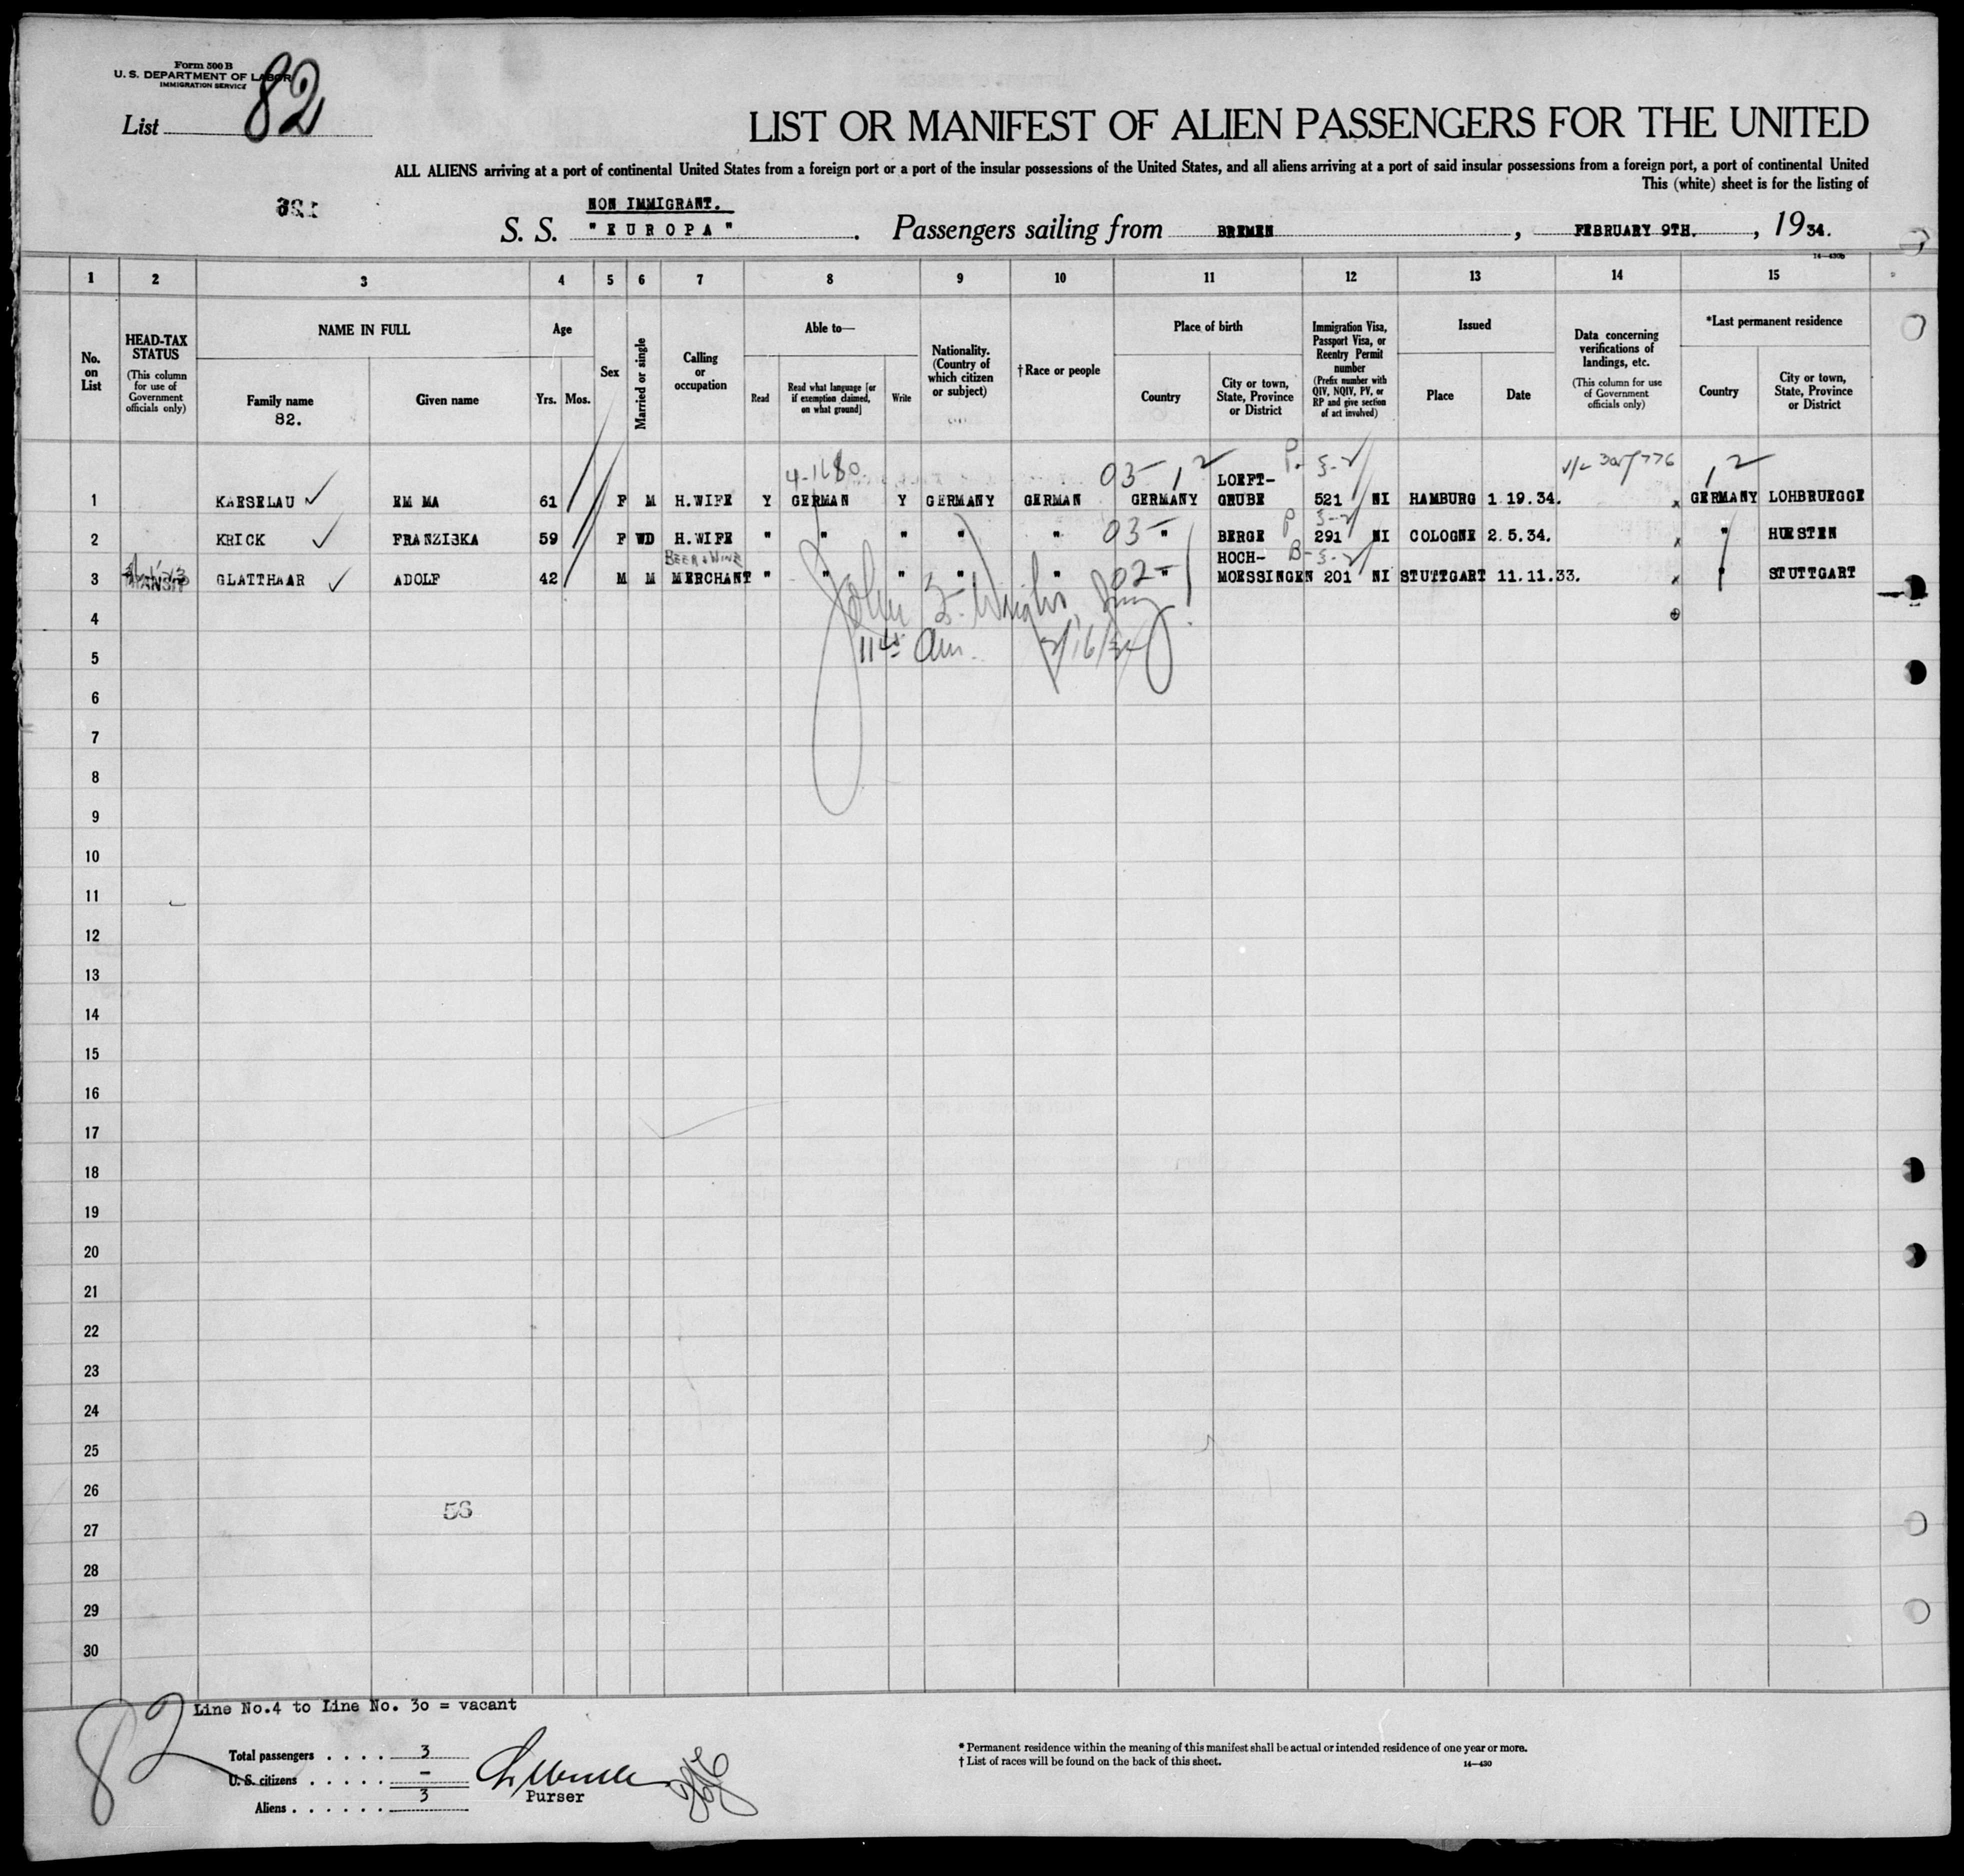 Form 500 B
U. S. DEPARTMENT OF LABOR
IMMIGRATION SERVICE
List 82
LIST OR MANIFEST OF ALIEN PASSENGERS FOR THE UNITED
ALL ALIENS arriving at a port of continental United States from a foreign port or a port of the insular possessions of the United States, and all aliens arriving at a port of said insular possessions from a foreign port, a port of continental United
This (white) sheet is for the listing of
NON IMMIGRANT.
S. S. "EUROPA". Passengers sailing from BREMEN, FEBRUARY 9TH., 1934.
14-430b
1 2 3 4 5 6 7 8 9 10 11 12 13 14 15
No. on List
HEAD-TAX STATUS
(This column for use of Government officials only)
NAME IN FULL
Family name
82.
Given name
Age
Yrs. Mos.
Sex
Married or single
Calling or occupation
Able to—
Read
Read what language [or if exemption claimed, on what ground]
Write
Nationality. (Country of which citizen or subject)
†Race or people
Place of birth
Country
City or town, State, Province or District
Immigration Visa, Passport Visa, or Reentry Permit number
(Prefix number with QIV, NQIV, PV, or RP and give section of act involved)
Issued
Place
Date
Data concerning verifications of landings, etc.
(This column for use of Government officials only)
*Last permanent residence
Country
City or town, State, Province or District
03- 12 P. 3-2 12
LOEFT-
1 KAESELAU EM MA 61 F M H.WIFE Y GERMAN Y GERMANY GERMAN GERMANY GRUBE 521 NI HAMBURG 1.19.34. x GERMANY LOHBRUEGGE
P 3-2
2 KRICK FRANZISKA 59 F WD H.WIFE " " " " " 03- " BERGE 291 NI COLOGNE 2.5.34. x " HUESTEN
BEER & WINE HOCH- B-3-2
3 TRANSIT GLATTHAAR ADOLF 42 M M MERCHANT " " " " " 02- " MOESSINGEN 201 NI STUTTGART 11.11.33. x " STUTTGART
4
John Z. Wright
5
11 45 am. 2/16/34
6
7
8
9
10
11
12
13
14
15
16
17
18
19
20
21
22
23
24
25
26
56
27
28
29
30
Line No.4 to Line No. 30 = vacant
82
Total passengers . . . . 3
U. S. citizens . . . . . —
Aliens . . . . . . 3
Purser
* Permanent residence within the meaning of this manifest shall be actual or intended residence of one year or more.
† List of races will be found on the back of this sheet.
14-430